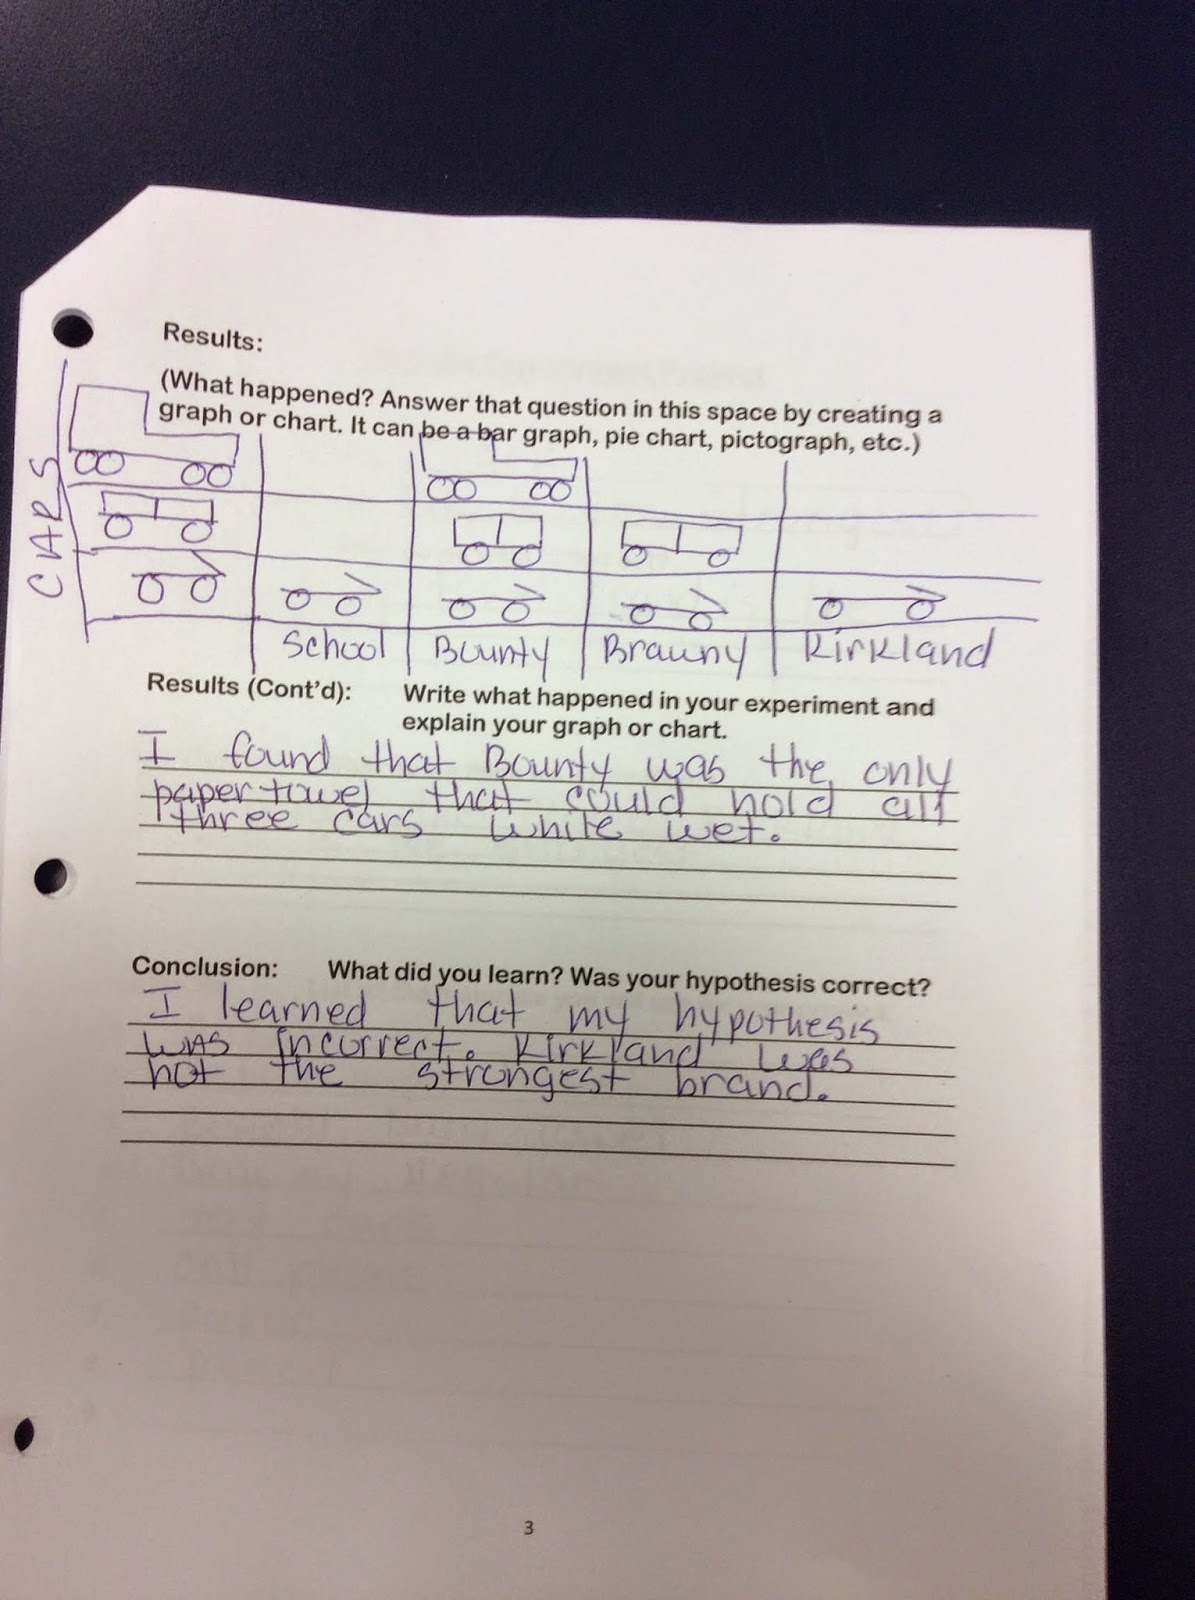 Results:
(What happened? Answer that question in this space by creating a
graph or chart. It can be a bar graph, pie chart, pictograph, etc.)
CARS
School Bounty Brauny Kirkland
Results (Cont'd): Write what happened in your experiment and
explain your graph or chart.
I found that Bounty was the only
paper towel that could hold all
three cars while wet.
Conclusion: What did you learn? Was your hypothesis correct?
I learned that my hypothesis
was incorrect. Kirkland was
not the strongest brand.
3